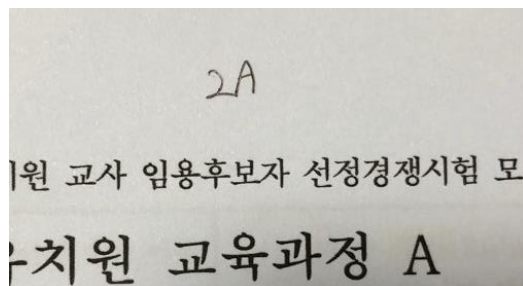 2A
교사 임용후보자 선정경쟁시험
교육과정 A